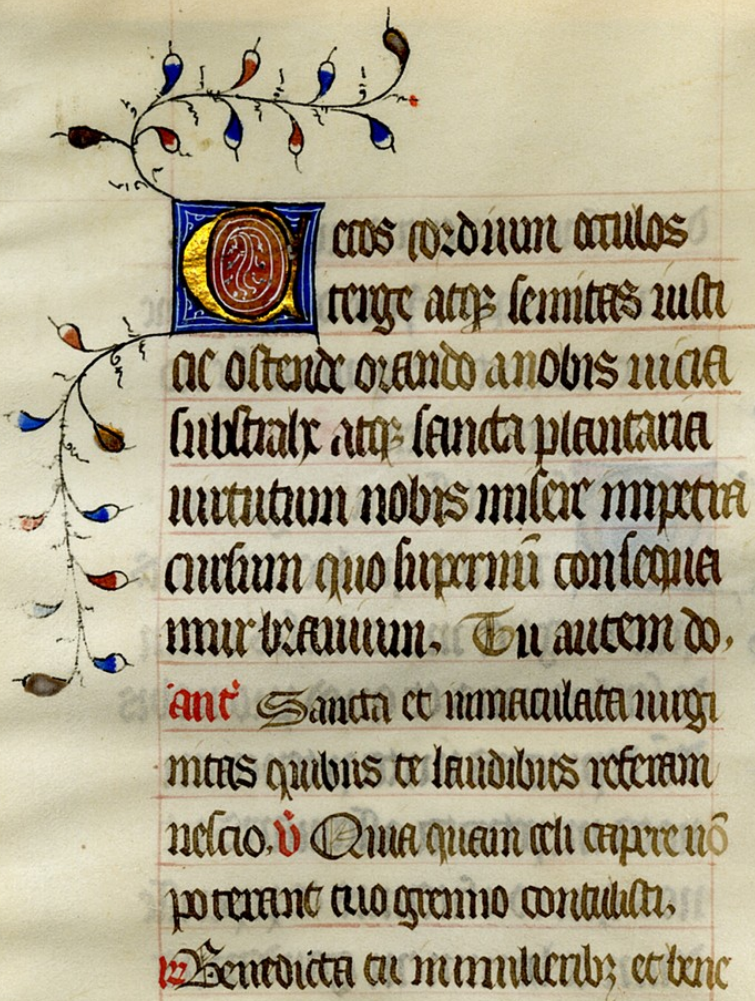 Cecos cordium occulos
terge atqꝫ semitas iusti
cie ostende orando a nobis uicia
substrahe atqꝫ sancta plantaria
uirtutum nobis misere impetra
cursum quo supernū consequa
mur brauium. Tu autem do.
ant' Sancta et inmaculata uirgi
nitas quibus te laudibus referam
nescio. v̄ Quia quam celi capere nō
poterant tuo gremio contulisti.
Benedicta tu in mulieribꝫ et bene